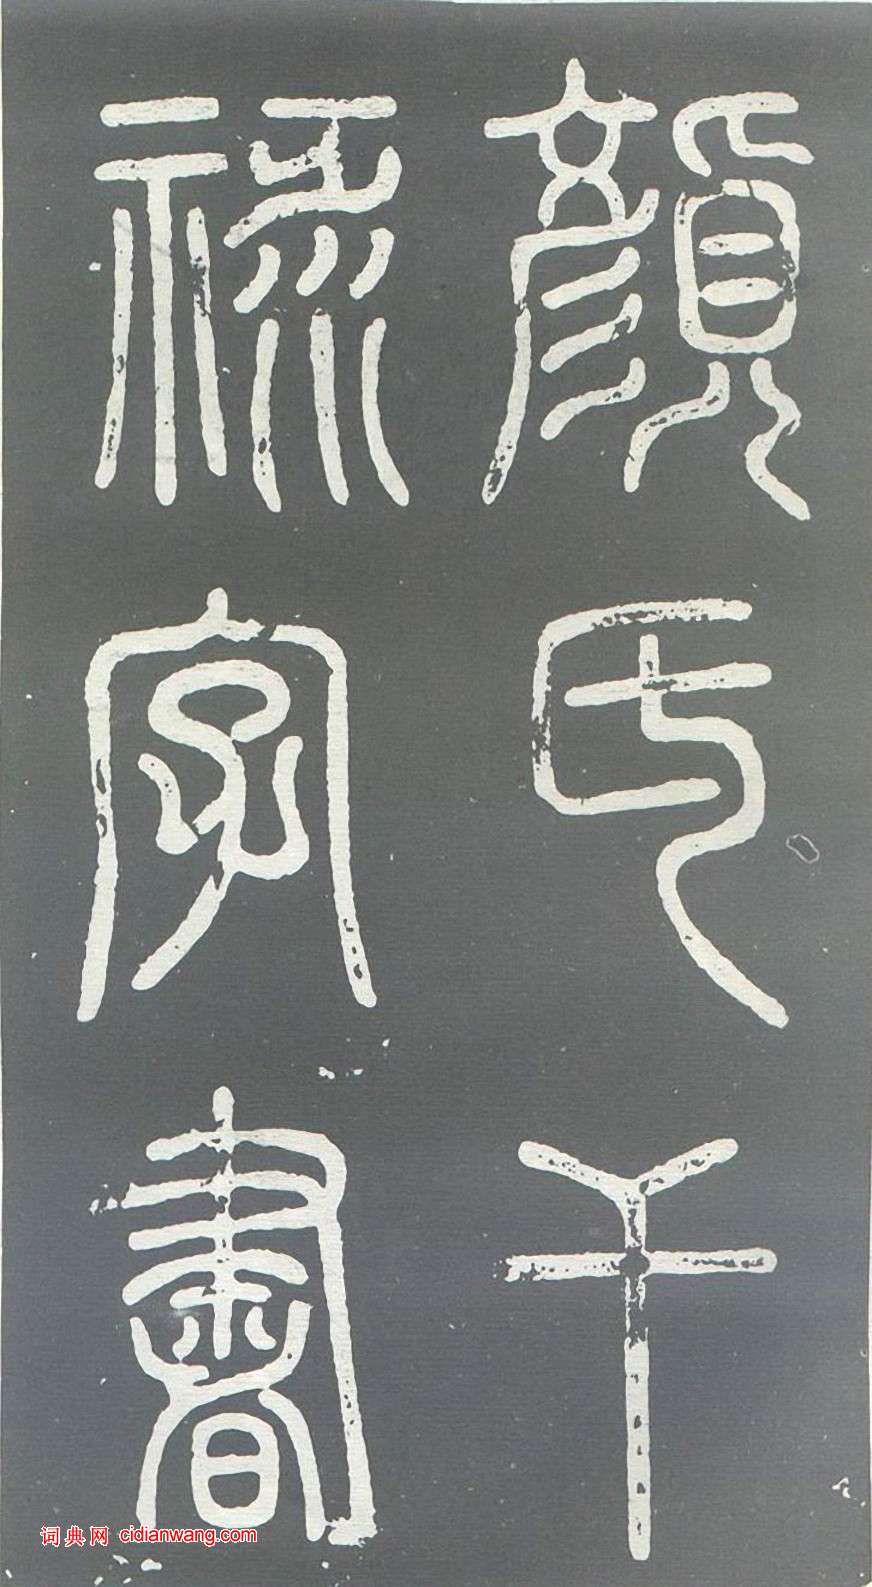 顏氏干
祿字書
词典网 cidianwang.com